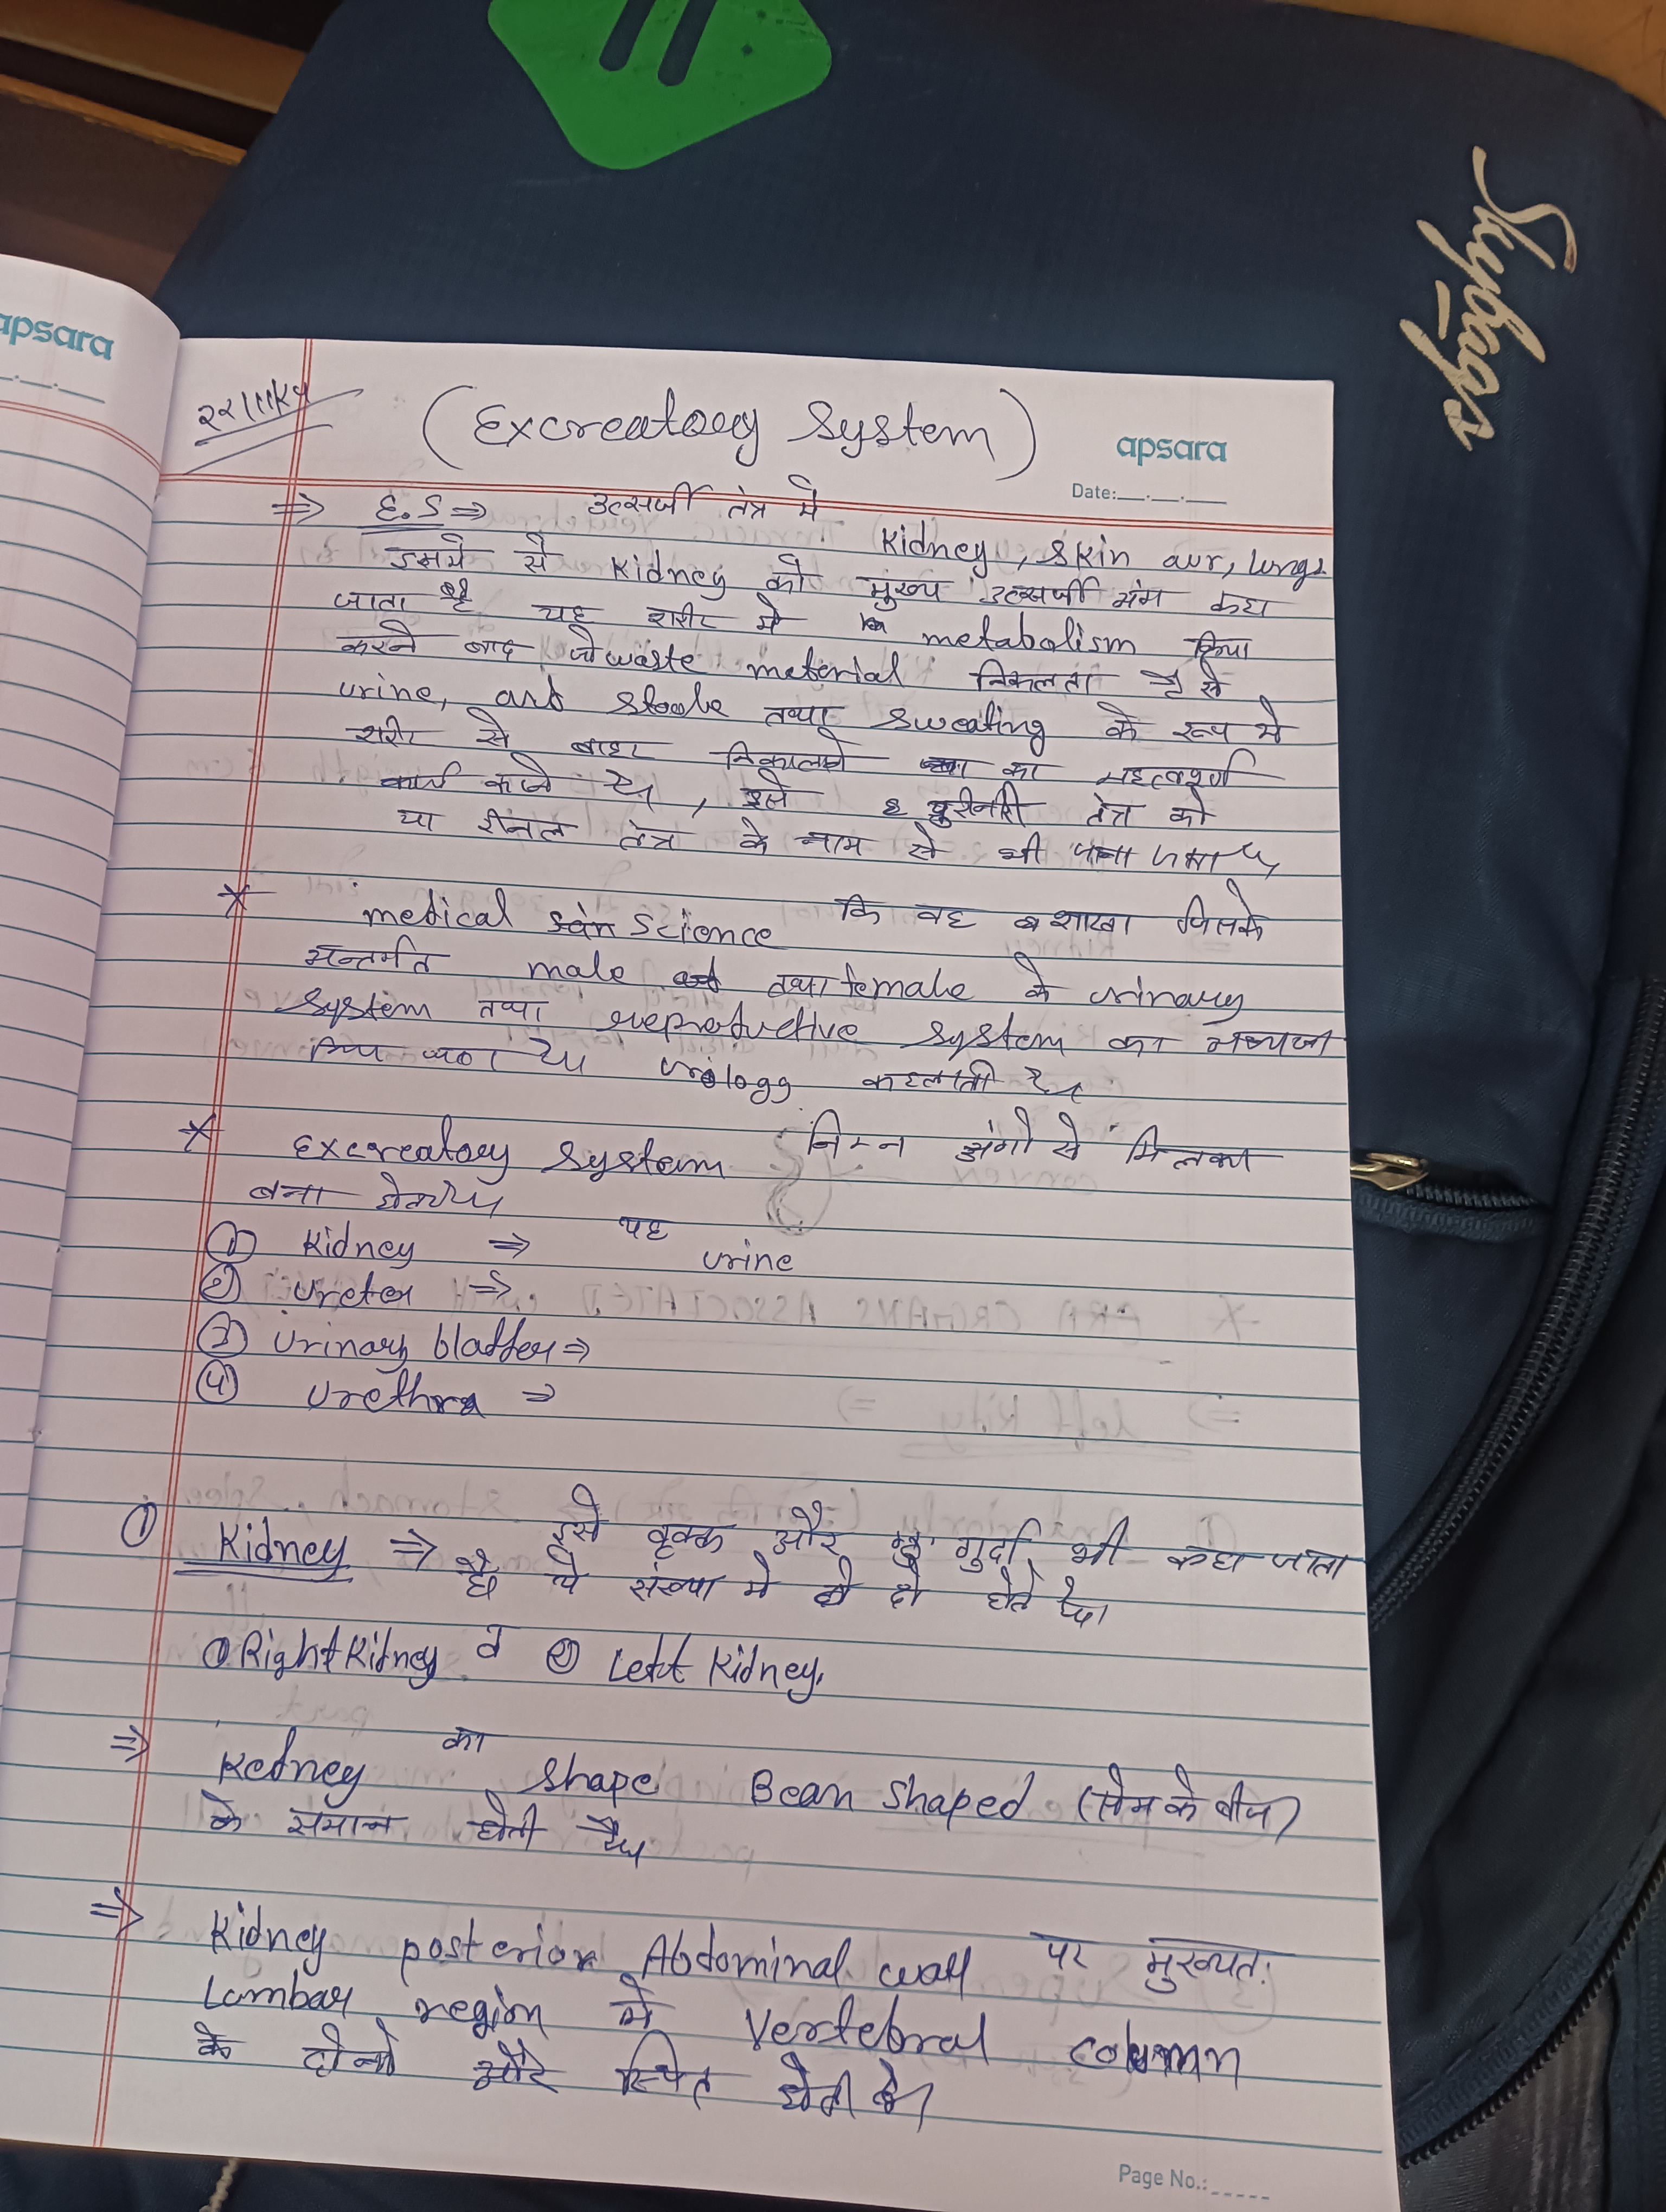 apsara
Skybags
(Excreatory System)
apsara
Date:__.__.__
⇒ E.S ⇒ उत्सर्जी तंत्र मे Kidney, skin aur, lungs
इसमे से Kidney को मुख्य उत्सर्जी अंग कहा
जाता है यह शरीर मे metabolism क्रिया
करने बाद जो waste meterial निकलता है से
urine, and stoole तथा sweating के रूप मे
शरीर से बाहर निकालने का महत्वपूर्ण
कार्य करते है, इसे युरीनरी तंत्र को
या रीनल तंत्र के नाम से भी जाना जाता है
* medical Science कि वह शाखा जिसके
अन्तर्गत male तथा female के urinary
system तथा reproductive system का अध्यन
किया जाता है। urology कहलाती है।
* Excreatory System निम्न अंगो से मिलकर
बना होता है।
① Kidney ⇒ यह urine
② Ureter ⇒
③ Urinary bladder ⇒
④ Urethra ⇒
① Kidney ⇒ इसे वृक्क और गुर्दा भी कहा जाता
है ये संख्या मे दो होते है।
① Right Kidney व ② Left Kidney.
⇒ Kedney का shape Bean shaped (सेम के बीज)
के समान होती है।
⇒ Kidney posterior Abdominal wall पर मुख्यत:
Lumbar region मे Vertebral column
के दोनो और स्थित होती है।
Page No.:_____